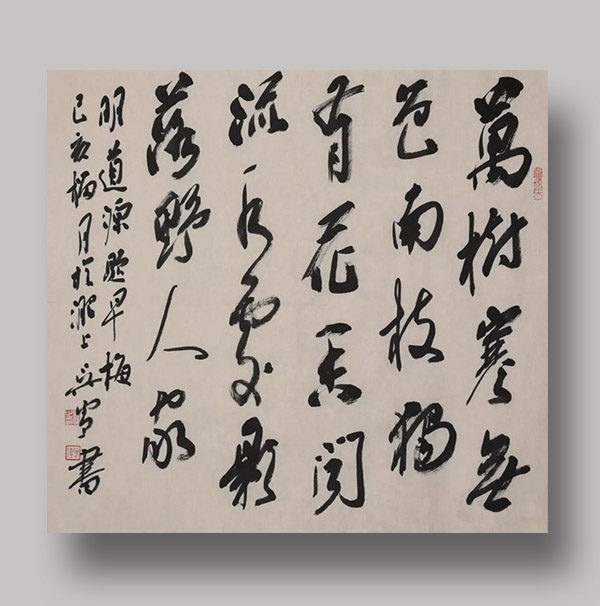 萬樹寒無
色南枝獨
有花香聞
流水處影
落野人家
明道源題早梅
己亥梅月於上書